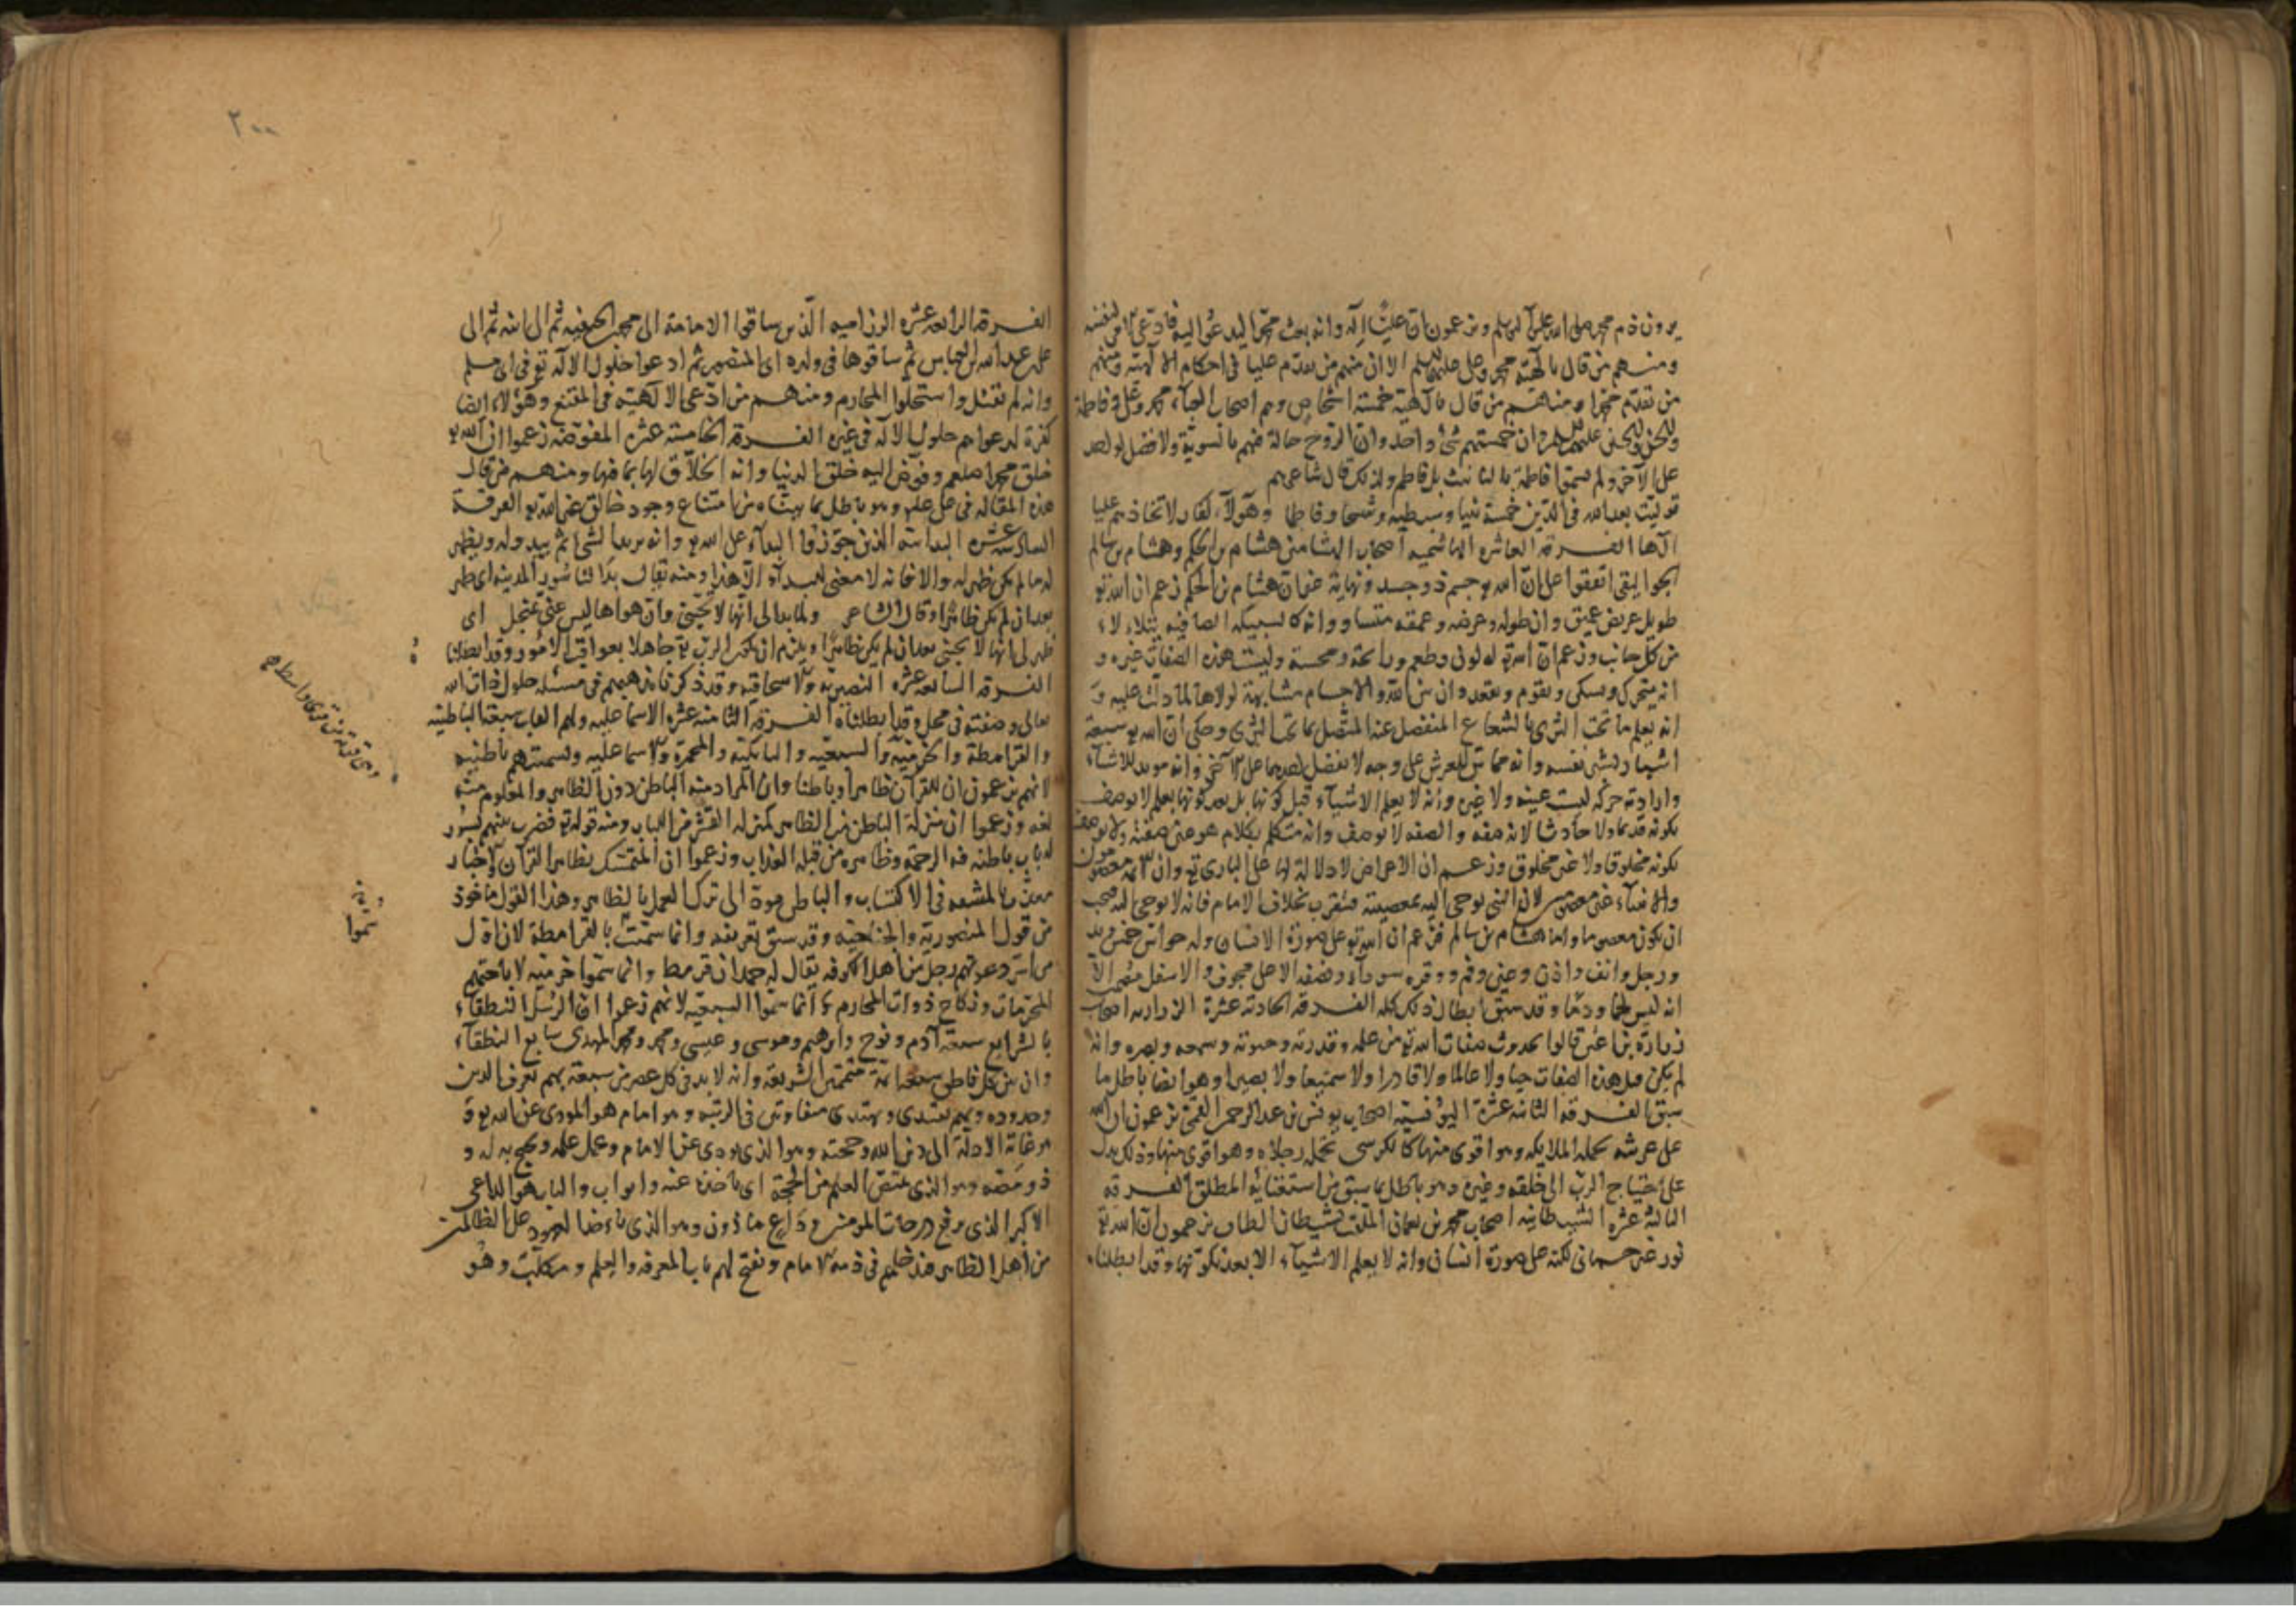 يرون ذم محمد صلى الله عليه وآله وسلم ويزعمون ان عليا إله وانه بعث محمدا ليدعو اليه فادعى الامر لنفسه
ومنهم من قال بآلهية محمد وعلى عليهما السلم الا ان منهم من يقدم عليا فى احكام الالهية ومنهم
من يقدم محمدا ومنهم من قال بآلهية خمسة اشخاص وهم اصحاب العباء محمد وعلى وفاطمة
والحسن والحسين عليهم السلم وان خمستهم شئ واحد وان الروح حالة فيهم بالسوية ولا فضل لواحد
على الآخر ولم يسموا فاطمة بالتانيث بل فاطم ولذلك قال شاعرهم
توليت بعد الله فى الدين خمسة نبيا وسبطيه وشيخا وفاطما وهؤلاء كفار لاتخاذهم عليا
آلها الفرقة العاشرة الهاشمية اصحاب الهشامين هشام بن الحكم وهشام بن سالم
الجواليقى اتفقوا على ان الله تع جسم ذو جسد ونهاية غير ان هشام بن الحكم زعم ان الله تع
طويل عريض عميق وان طوله وعرضه وعمقه متساو وانه كالسبيكة الصافية يتلألأ
من كل جانب وزعم ان الله تع له لون وطعم ورائحة ومجسة وليست هذه الصفات غيره و
انه يتحرك ويسكن ويقوم ويقعد وان بين الله والاجسام مشابهة لولاها لما دلت عليه و
انه يعلم ما تحت الثرى بالشعاع المنفصل عنه المتصل بما تحت الثرى وحكى ان الله تع سبعة
اشبار بشبر نفسه وانه مماس للعرش على وجه لا يفضل احدهما على الآخر وانه مريد للاشياء
وارادته حركة ليست عينه ولا غيره وانه لا يعلم الاشياء قبل كونها بل بعد كونها بعلم لا يوصف
بكونه قديما ولا حادثا لانه صفة والصفة لا يوصف وانه متكلم بكلام هو عين صفته ولا يوصف
بكونه مخلوقا ولا غير مخلوق وزعم ان الاعراض لا دلالة لها على البارى تع وان الائمة معصومون
والانبياء غير معصومين لان النبى يوحى اليه بمعصيته فيتقرب بخلاف الامام فانه لا يوحى اليه فيجب
ان يكون معصوما واما هشام بن سالم فزعم ان الله تع على صورة الانسان وله حواس خمس ويد
ورجل وانف واذن وعين وفم ووفرة سوداء ونصفه الاعلى مجوف والاسفل مصمت الا
انه ليس لحما ودما وقد سبق ابطال ذلك كله الفرقة الحادية عشرة الزرارية اصحاب
زرارة بن اعين قالوا بحدوث صفات الله تع من علمه وقدرته وحيوته وسمعه وبصره وانه
لم يكن قبل هذه الصفات حيا ولا عالما ولا قادرا ولا سميعا ولا بصيرا وهو ايضا باطل لما
سبق الفرقة الثانية عشرة اليونسية اصحاب يونس بن عبد الرحمن القمى يزعمون ان الله
على عرشه تحمله الملايكة وهو اقوى منها كالكرسى تحمله رجلاه وهو اقوى منها وذلك يدل
على احتياج الرب الى خلقه وغيره وهو باطل بما سبق من استغنائه المطلق الفرقة
الثالثة عشرة الشيطانية اصحاب محمد بن نعمان الملقب بشيطان الطاق يزعمون ان الله تع
نور غير جسمانى لكنه على صورة انسان وانه لا يعلم الاشياء الا بعد تكونها وقد ابطلناه
٢٠٠
الفرقة الرابعة عشرة الرزامية الذين ساقوا الامامة الى محمد بن الحنفية ثم الى ابنه ثم الى
على بن عبد الله بن العباس ثم ساقوها فى ولده الى المنصور ثم ادعوا حلول الاله تع فى ابى مسلم
وانه لم يقتل واستحلوا المحارم ومنهم من ادعى الالهية فى المقنع وهؤلاء ايضا
كفرة لدعواهم حلول الاله فى غيره الفرقة الخامسة عشرة المفوضة زعموا ان الله تع
خلق محمدا صلعم وفوض اليه خلق الدنيا وانه الخلاق لها بما فيها ومنهم من قال
هذه المقالة فى على عليه وهو باطل بما بيناه من امتناع وجود خالق غير الله تع الفرقة
السادسة عشرة البدائية الذين جوزوا البداء على الله تع وانه يريد الشئ ثم يبدو له ويظهر
له ما لم يكن يظهر له والا فانه لا معنى للبداء الا هذا ومنه يقال بدا لنا سور المدينة اى ظهر
بعد ان لم يكن ظاهرا وقال الشاعر ولما بدا لى انها لا تحبنى وان هواها ليس عنى بمنجل اى
ظهر لى انها لا تحبنى بعد ان لم يكن ظاهرا ويلزم ان يكون الرب تع جاهلا بعواقب الامور وقد ابطلنا
الفرقة السابعة عشرة النصيرية والاسحاقية وقد ذكرنا مذهبهم فى مسئلة حلول ذات الله
تعالى وصفته فى محل وقد ابطلناه الفرقة الثامنة عشرة الاسماعلية ولهم القاب سبعة الباطنية
والقرامطة والخرمية والسبعية والبابكية والمحمرة والاسماعلية وتسميتهم باطنية
لانهم يزعمون ان للقرآن ظاهرا وباطنا وان المراد منه الباطن دون الظاهر والمعلوم منه
لغة وزعموا ان منزلة الباطن من الظاهر كمنزلة القشر من اللباب ومنه قوله تع فضرب بينهم بسور
له باب باطنه فيه الرحمة وظاهره من قبله العذاب وزعموا ان المتمسك بظاهر القرآن والاخبار
معذب بالمشقة فى الاكتساب والباطن مودة الى ترك العمل بالظاهر وهذا القول ماخوذ
من قول المنصورية والجناحية وقد سبق تعريفه وانما سميت بالقرامطة لان اول
من اسس دعوتهم رجل من اهل الكوفة يقال له حمدان قرمط وانما سموا خرمية لاباحتهم
المحرمات ونكاح ذوات المحارم وانما سموا السبعية لانهم زعموا ان الرسل النطقاء
بالشرايع سبعة آدم ونوح وابرهيم وموسى وعيسى ومحمد ومحمد المهدى سابع النطقاء
وان بين كل ناطقين سبعة ائمة متممين الشريعة وانه لا بد فى كل عصر من سبعة بهم يعرف الدين
وحدوده وبهم يقتدى ويهتدى متفاوتين فى الرتبة وهو امام هو المودى عن الله تع و
هو غاية الادلة الى دين الله وحجته وهو الذى يودى عن الامام ويحمل علمه ويحتج به له و
ذو مصة وهو الذى يمتص العلم من الحجة اى ياخذه عنه وابواب والباب هو الداعى
الاكبر الذى يرفع درجات المومنين وداع ماذون وهو الذى ياخذ العهود على الطالبين
من اهل الظاهر فيدخلهم فى ذمة الامام ويفتح لهم باب المعرفة والعلم ومكلب وهو
سموا